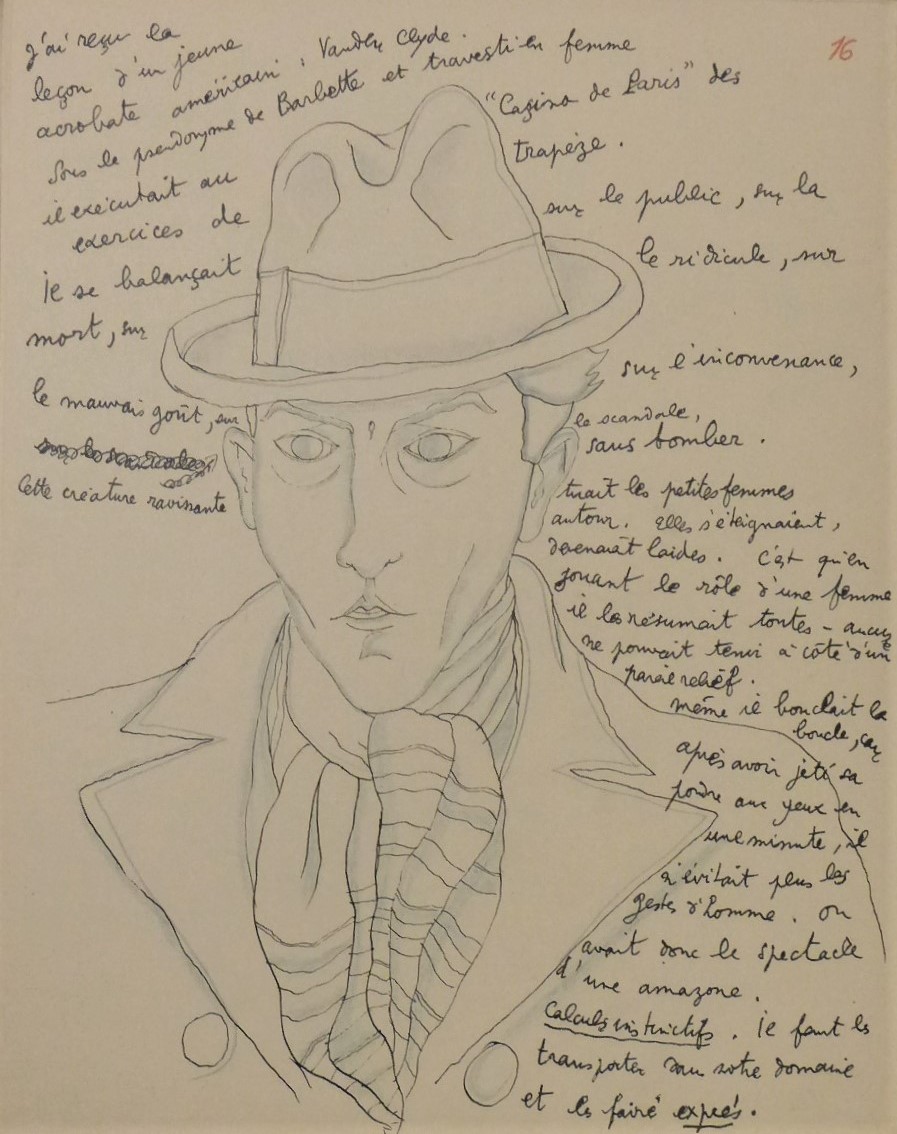 16
J'ai reçu la
leçon d'un jeune
acrobate américain : Vander Clyde.
Sous le pseudonyme de Barbette et travesti en femme
il exécutait au "Casino de Paris" des
exercices de trapèze.
Il se balançait sur le public, sur la
mort, sur le ridicule, sur
le mauvais goût, sur sur l'inconvenance,
le scandale,
sans tomber.
Cette créature ravissante
tuait les petites femmes
autour. Elles s'éteignaient,
devenaient laides. C'est qu'en
jouant le rôle d'une femme
il les résumait toutes – aucune
ne pouvait tenir à côté d'un
pareil relief.
même il bouclait la
boucle, car
après avoir jeté sa
poudre aux yeux en
une minute, il
n'évitait plus les
gestes d'homme. On
avait donc le spectacle
d'une amazone.
Calculs instinctifs. Il faut les
transporter dans notre domaine
et les faire exprès.